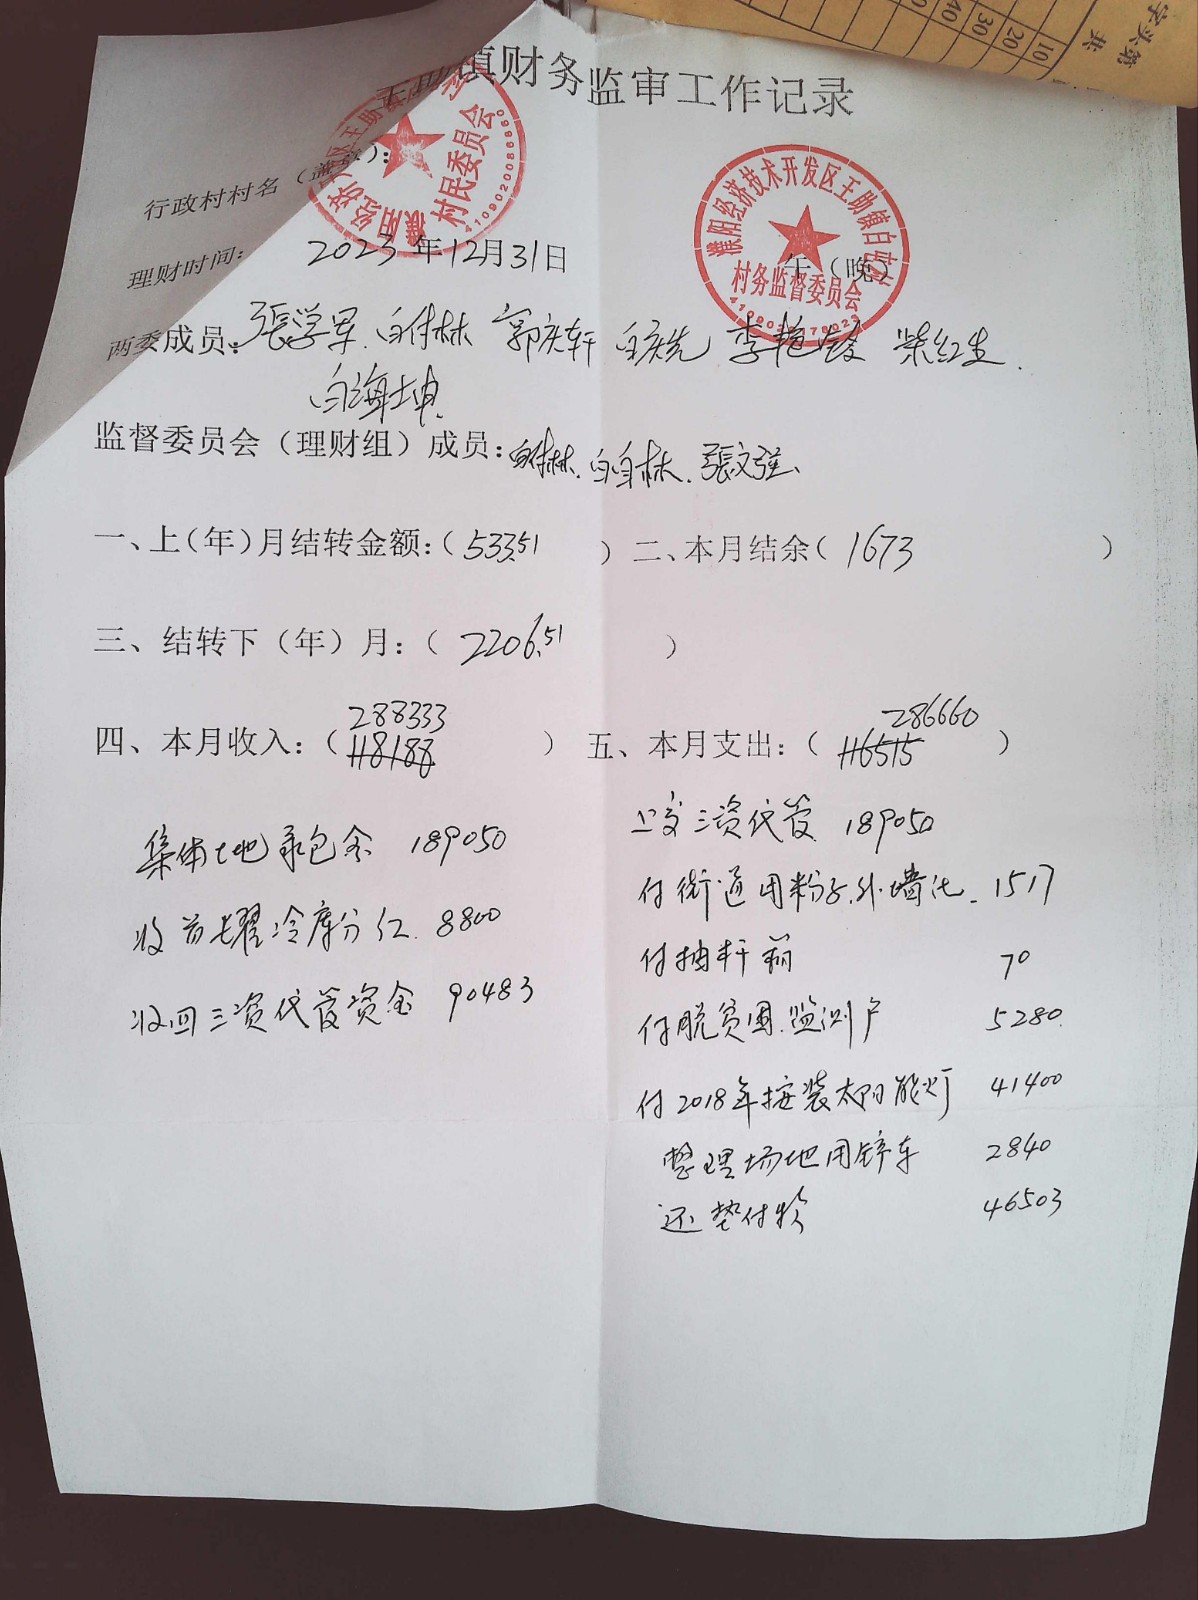 镇财务监审工作记录
行政村村名（盖章）：
村民委员会
4109020088860
濮阳经济技术开发区王助镇白
村务监督委员会
理财时间： 2023年12月31日 午（晚）
两委成员：張学军、白付林 郭庆轩 李艳 柴红生.
白海坤
监督委员会（理财组）成员：白付林、白自林、張文强
一、上（年）月结转金额：（533.51 ）二、本月结余（ 1673 ）
三、结转下（年）月：（ 2206.51 ）
288333 286660
四、本月收入：（ 118188 ） 五、本月支出：（ 116515 ）
集体土地承包金 189050
收 耀冷库分红. 8800
收回三资代管资金 90483
上交三资代管 189050
付街道用粉子.外墙 1517
付抽杆 70
付脱贫困.监测户 5280.
付2018年按装太阳能灯 41400
整理场地用铲车 2840
还垫付款 46503
字头第
共
10
20
30
40